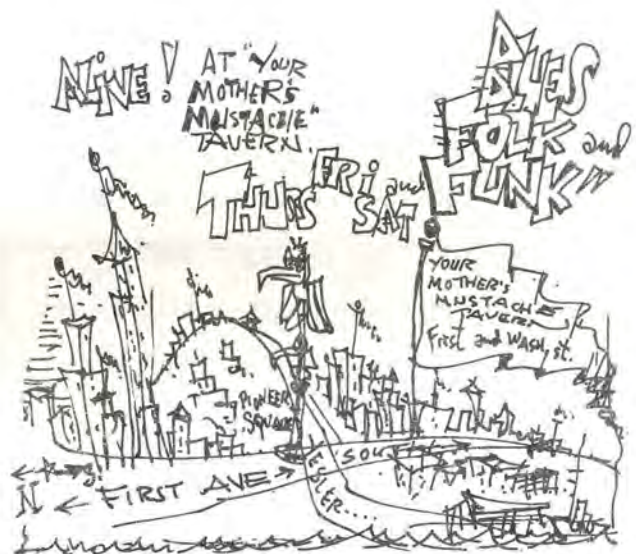 ALIVE!
AT "YOUR
MOTHER'S
MUSTACHE"
TAVERN.
THURS FRI and SAT
BLUES
FOLK and
FUNK"
YOUR
MOTHER'S
MUSTACHE
TAVERN
First and WASH. St.
PIONEER
SQUARE
N ← FIRST AVE →
YESLER....